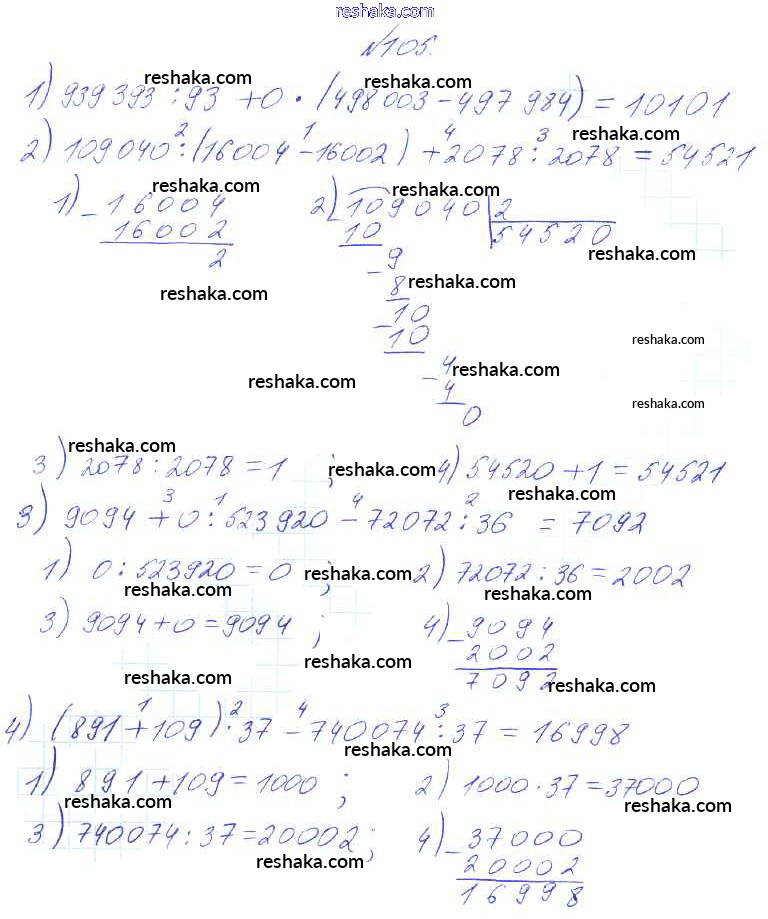 reshaka.com
№105.
reshaka.com reshaka.com
1) 939 393 : 93 + 0 · (498 003 - 497 984) = 10101
reshaka.com
2 1 4 3
2) 109 040 : (16004 - 16002) + 2078 : 2078 = 54521
reshaka.com reshaka.com
1) - 16004 2) - 109040 | 2
16002 10 54520
2 - 9 reshaka.com
reshaka.com 8 reshaka.com
- 10
10 reshaka.com
reshaka.com - 4 reshaka.com
4 reshaka.com
0
reshaka.com
3) 2078 : 2078 = 1 ; reshaka.com 4) 54520 + 1 = 54521
reshaka.com
3 1 4 2
3) 9094 + 0 : 523 920 - 72072 : 36 = 7092
reshaka.com reshaka.com
1) 0 : 523920 = 0 ; reshaka.com 2) 72072 : 36 = 2002
reshaka.com reshaka.com
3) 9094 + 0 = 9094 ; 4) - 9094
2002
reshaka.com 7092 reshaka.com
1 2 4 3
4) (891 + 109) · 37 - 740074 : 37 = 16998
reshaka.com reshaka.com
1) 891 + 109 = 1000 ; 2) 1000 · 37 = 37000
reshaka.com reshaka.com
3) 740074 : 37 = 20002 ; 4) - 37000
reshaka.com 20002
16998 reshaka.com